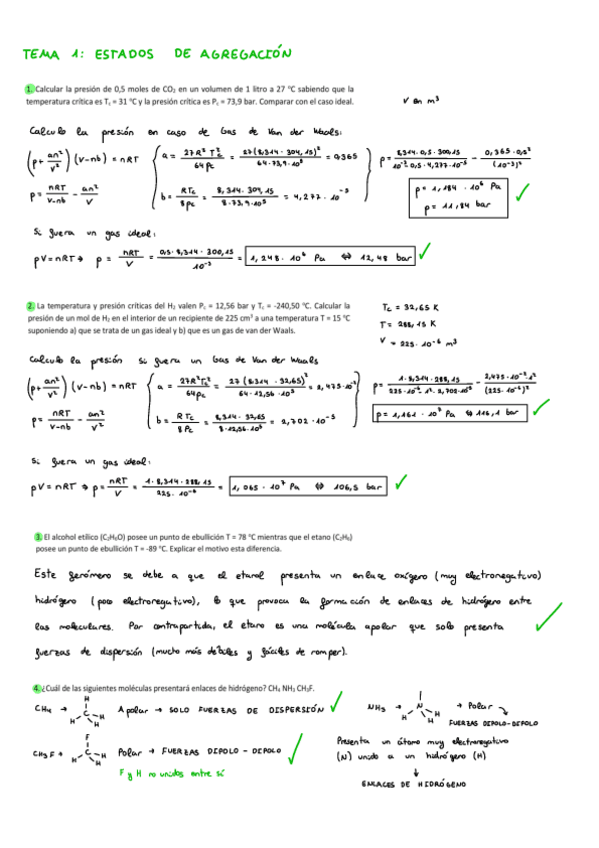 TEMA 1: ESTADOS DE AGREGACIÓN
1. Calcular la presión de 0,5 moles de CO₂ en un volumen de 1 litro a 27 ºC sabiendo que la
temperatura crítica es T꜀ = 31 ºC y la presión crítica es P꜀ = 73,9 bar. Comparar con el caso ideal.
V en m³
Calculo la presión en caso de Gas de Van der Waals:
(p + an²/v²) (v-nb) = nRT
a = 27R² Tc²/64pc = 27(8,314 · 304,15)²/64·73,9·10⁵ = 0,365
p = 8,314·0,5·300,15/10⁻³·0,5·4,277·10⁻⁵ - 0,365·0,5²/(10⁻³)²
p = nRT/v-nb - an²/V
b = RTc/8pc = 8,314·304,15/8·73,9·10⁵ = 4,277·10⁻⁵
p = 1,184 · 10⁶ Pa
p = 11,84 bar
Si fuera un gas ideal:
pV = nRT → p = nRT/V = 0,5·8,314·300,15/10⁻³ = 1,248·10⁶ Pa ⇔ 12,48 bar
2. La temperatura y presión críticas del H₂ valen P꜀ = 12,56 bar y T꜀ = -240,50 ºC. Calcular la
presión de un mol de H₂ en el interior de un recipiente de 225 cm³ a una temperatura T = 15 ºC
suponiendo a) que se trata de un gas ideal y b) que es un gas de van der Waals.
Tc = 32,65 K
T = 288,15 K
V = 225·10⁻⁶ m³
Calculo la presión si fuera un Gas de Van der Waals
(p + an²/v²) (v-nb) = nRT
a = 27R²Tc²/64pc = 27(8,314·32,65)²/64·12,56·10⁵ = 2,475·10⁻²
p = 1·8,314·288,15/225·10⁻⁶ 1·2,702·10⁻⁵ - 2,475·10⁻²·1²/(225·10⁻⁶)²
p = nRT/v-nb - an²/v²
b = RTc/8Pc = 8,314·32,65/8·12,56·10⁵ = 2,702·10⁻⁵
p = 1,161·10⁷ Pa ⇔ 116,1 bar
Si fuera un gas ideal:
pV = nRT → p = nRT/V = 1·8,314·288,15/225·10⁻⁶ = 1,065·10⁷ Pa ⇔ 106,5 bar
3. El alcohol etílico (C₂H₆O) posee un punto de ebullición T = 78 ºC mientras que el etano (C₂H₆)
posee un punto de ebullición T = -89 ºC. Explicar el motivo esta diferencia.
Este fenómeno se debe a que el etanol presenta un enlace oxígeno (muy electronegativo)
hidrógeno (poco electronegativo), lo que provoca la formación de enlaces de hidrógeno entre
las moleculares. Por contrapartida, el etano es una molécula apolar que solo presenta
fuerzas de dispersión (mucho más débiles y fáciles de romper).
4. ¿Cuál de las siguientes moléculas presentará enlaces de hidrógeno? CH₄ NH₃ CH₃F.
CH₄ → H C H H H Apolar → SOLO FUERZAS DE DISPERSIÓN
NH₃ → N H H H → Polar
FUERZAS DIPOLO-DIPOLO
CH₃F → F C H H H Polar → FUERZAS DIPOLO - DIPOLO
F y H no unidos entre sí
Presenta un átomo muy electronegativo
(N) unido a un hidrógeno (H)
ENLACES DE HIDRÓGENO